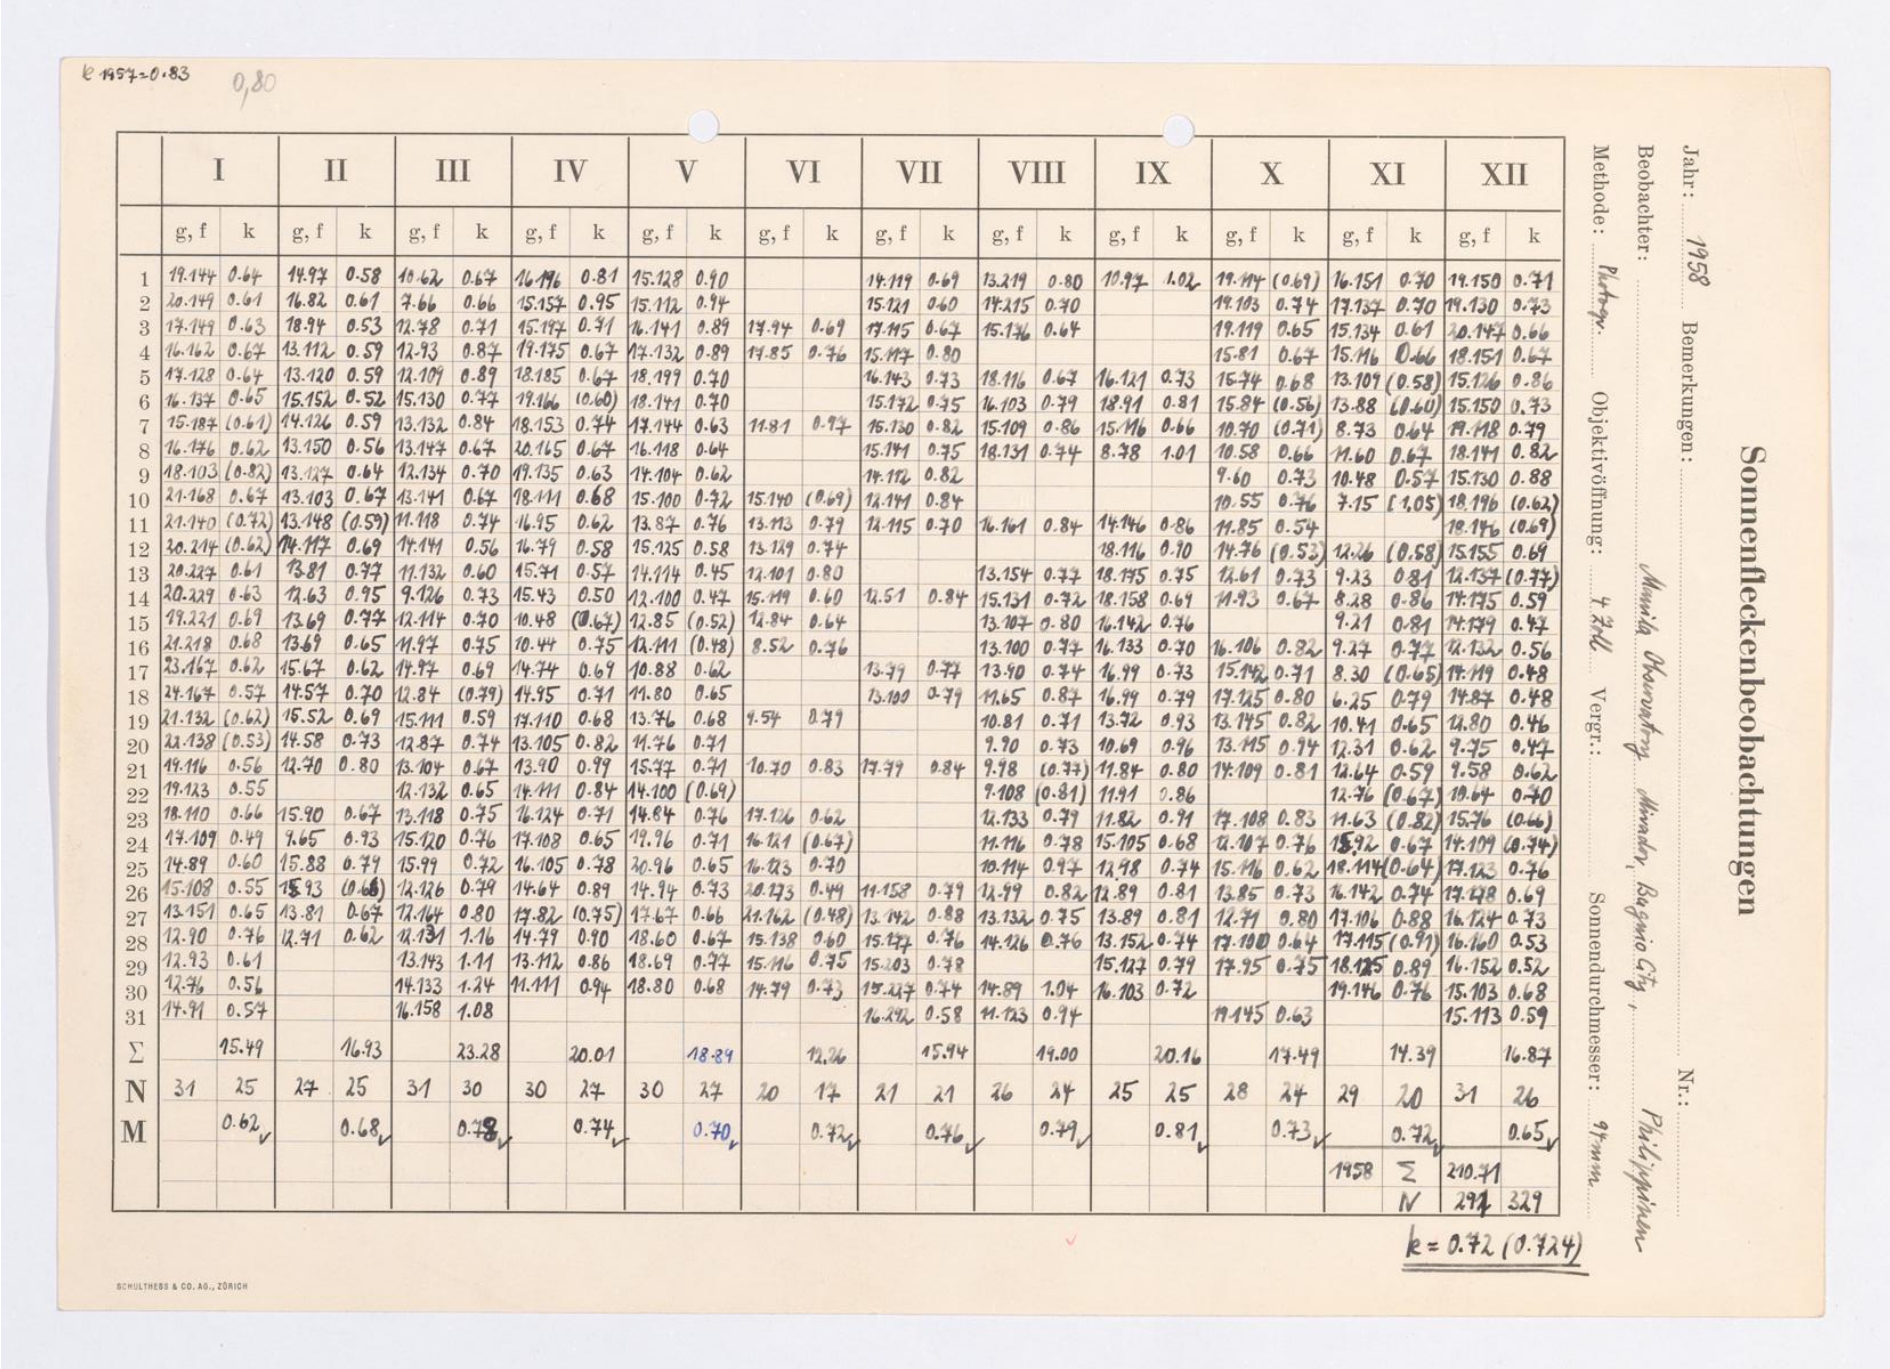 k 1957=0.83
0,80
Sonnenfleckenbeobachtungen
Jahr: 1958 Bemerkungen: Nr.:
Beobachter: Manila Observatory Mirador, Baguio City, Philippinen
Methode: Photogr. Objektivöffnung: 4 Zoll Vergr.: Sonnendurchmesser: 94mm
I II III IV V VI VII VIII IX X XI XII
g, f k g, f k g, f k g, f k g, f k g, f k g, f k g, f k g, f k g, f k g, f k g, f k
1 19.144 0.64 14.97 0.58 10.62 0.67 16.196 0.81 15.128 0.90 14.119 0.69 13.219 0.80 10.97 1.02 19.114 (0.69) 16.151 0.70 19.150 0.71
2 20.149 0.61 16.82 0.61 7.66 0.66 15.157 0.95 15.112 0.94 15.121 0.60 14.215 0.70 19.103 0.74 17.137 0.70 19.130 0.73
3 17.149 0.63 18.94 0.53 12.78 0.71 15.197 0.71 16.141 0.89 17.94 0.69 17.115 0.67 15.176 0.64 19.119 0.65 15.134 0.61 20.147 0.66
4 16.162 0.67 13.112 0.59 12.93 0.87 19.175 0.67 17.132 0.89 17.85 0.76 15.117 0.80 15.81 0.67 15.116 0.66 18.151 0.67
5 17.128 0.64 13.120 0.59 12.109 0.89 18.185 0.67 18.199 0.70 16.143 0.73 18.116 0.67 16.121 0.73 15.74 0.68 13.109 (0.58) 15.126 0.86
6 16.137 0.65 15.152 0.52 15.130 0.77 19.166 (0.60) 18.141 0.70 15.172 0.75 16.103 0.79 18.91 0.81 15.84 (0.56) 13.88 (0.60) 15.150 0.73
7 15.187 (0.61) 14.126 0.59 13.132 0.84 18.153 0.74 17.144 0.63 11.81 0.97 15.130 0.82 15.109 0.86 15.116 0.66 10.70 (0.71) 8.73 0.64 19.118 0.79
8 16.176 0.62 13.150 0.56 13.147 0.67 20.165 0.67 16.118 0.64 15.141 0.75 18.131 0.74 8.78 1.01 10.58 0.66 11.60 0.67 18.141 0.82
9 18.103 (0.82) 13.127 0.64 12.134 0.70 19.135 0.63 14.104 0.62 14.112 0.82 9.60 0.73 10.48 0.57 15.130 0.88
10 21.168 0.67 13.103 0.67 13.141 0.67 18.111 0.68 15.100 0.72 15.140 (0.69) 12.141 0.84 10.55 0.76 7.15 (1.05) 18.196 (0.62)
11 21.140 (0.72) 13.148 (0.59) 11.118 0.74 16.95 0.62 13.87 0.76 13.113 0.79 12.115 0.70 16.161 0.84 14.146 0.86 11.85 0.54 18.146 (0.69)
12 20.214 (0.62) 14.117 0.69 14.141 0.56 16.79 0.58 15.125 0.58 13.129 0.74 18.116 0.90 14.76 (0.53) 12.26 (0.58) 15.155 0.69
13 20.227 0.61 13.81 0.77 11.132 0.60 15.71 0.57 14.114 0.45 12.101 0.80 13.154 0.77 18.175 0.75 12.61 0.73 9.23 0.81 12.137 (0.77)
14 20.229 0.63 12.63 0.95 9.126 0.73 15.43 0.50 12.100 0.47 15.119 0.60 12.51 0.84 15.131 0.72 18.158 0.69 11.93 0.67 8.28 0.86 14.175 0.59
15 19.221 0.69 13.69 0.77 12.114 0.70 10.48 (0.67) 12.85 (0.52) 12.84 0.64 13.107 0.80 16.142 0.76 9.21 0.81 14.179 0.47
16 21.218 0.68 13.69 0.65 11.97 0.75 10.44 0.75 12.111 (0.48) 8.52 0.76 13.100 0.77 16.133 0.70 16.106 0.82 9.27 0.77 12.132 0.56
17 23.167 0.62 15.67 0.62 14.97 0.69 14.74 0.69 10.88 0.62 13.79 0.77 13.90 0.74 16.99 0.73 15.142 0.71 8.30 (0.65) 14.119 0.48
18 24.167 0.57 14.57 0.70 12.84 (0.79) 14.95 0.71 11.80 0.65 13.100 0.79 11.65 0.87 16.99 0.79 17.125 0.80 6.25 0.79 14.87 0.48
19 21.132 (0.62) 15.52 0.69 15.111 0.59 17.110 0.68 13.76 0.68 9.54 0.79 10.81 0.71 13.72 0.93 13.145 0.82 10.41 0.65 12.80 0.46
20 22.138 (0.53) 14.58 0.73 12.87 0.74 13.105 0.82 11.76 0.71 9.90 0.73 10.69 0.96 13.115 0.94 12.31 0.62 9.75 0.47
21 19.116 0.56 12.70 0.80 13.104 0.67 13.90 0.99 15.77 0.71 10.70 0.83 17.79 0.84 9.98 (0.77) 11.84 0.80 14.109 0.81 12.64 0.59 9.58 0.62
22 19.123 0.55 12.132 0.65 14.111 0.84 14.100 (0.69) 9.108 (0.81) 11.91 0.86 12.76 (0.67) 10.64 0.70
23 18.110 0.66 15.90 0.67 13.118 0.75 16.124 0.71 14.84 0.76 17.126 0.62 12.133 0.79 11.82 0.91 17.108 0.83 11.63 (0.82) 15.76 (0.66)
24 17.109 0.49 9.65 0.93 15.120 0.76 17.108 0.65 19.96 0.71 16.121 (0.67) 11.116 0.78 15.105 0.68 12.107 0.76 15.92 0.67 14.109 (0.74)
25 14.89 0.60 15.88 0.79 15.99 0.72 16.105 0.78 20.96 0.65 16.123 0.70 10.114 0.97 12.98 0.74 15.116 0.62 18.114 (0.64) 17.123 0.76
26 15.108 0.55 15.93 (0.66) 12.126 0.79 14.64 0.89 14.94 0.73 20.273 0.49 11.158 0.79 12.99 0.82 12.89 0.81 13.85 0.73 16.142 0.74 17.128 0.69
27 13.151 0.65 13.81 0.67 12.164 0.80 17.82 (0.75) 17.67 0.66 21.162 (0.48) 13.142 0.88 13.132 0.75 13.89 0.81 12.71 0.80 17.106 0.88 16.124 0.73
28 12.90 0.76 12.71 0.62 12.131 1.16 14.79 0.90 18.60 0.67 15.138 0.60 15.177 0.76 14.126 0.76 13.152 0.74 17.100 0.64 17.115 (0.91) 16.160 0.53
29 12.93 0.61 13.143 1.11 13.112 0.86 18.69 0.77 15.116 0.75 15.203 0.78 15.127 0.79 17.95 0.75 18.125 0.89 16.152 0.52
30 12.76 0.56 14.133 1.24 11.111 0.94 18.80 0.68 14.79 0.73 15.227 0.74 14.89 1.04 16.103 0.72 19.146 0.76 15.103 0.68
31 14.91 0.57 16.158 1.08 16.292 0.58 11.123 0.94 19.145 0.63 15.113 0.59
Σ 15.49 16.93 23.28 20.01 18.89 12.26 15.94 19.00 20.16 17.49 14.39 16.87
N 31 25 27 25 31 30 30 27 30 27 20 17 21 21 26 24 25 25 28 24 29 20 31 26
M 0.62 0.68 0.78 0.74 0.70 0.72 0.76 0.79 0.81 0.73 0.72 0.65
1958 Σ 210.71
N 291 329
k = 0.72 (0.724)
SCHULTHESS & CO. AG., ZÜRICH